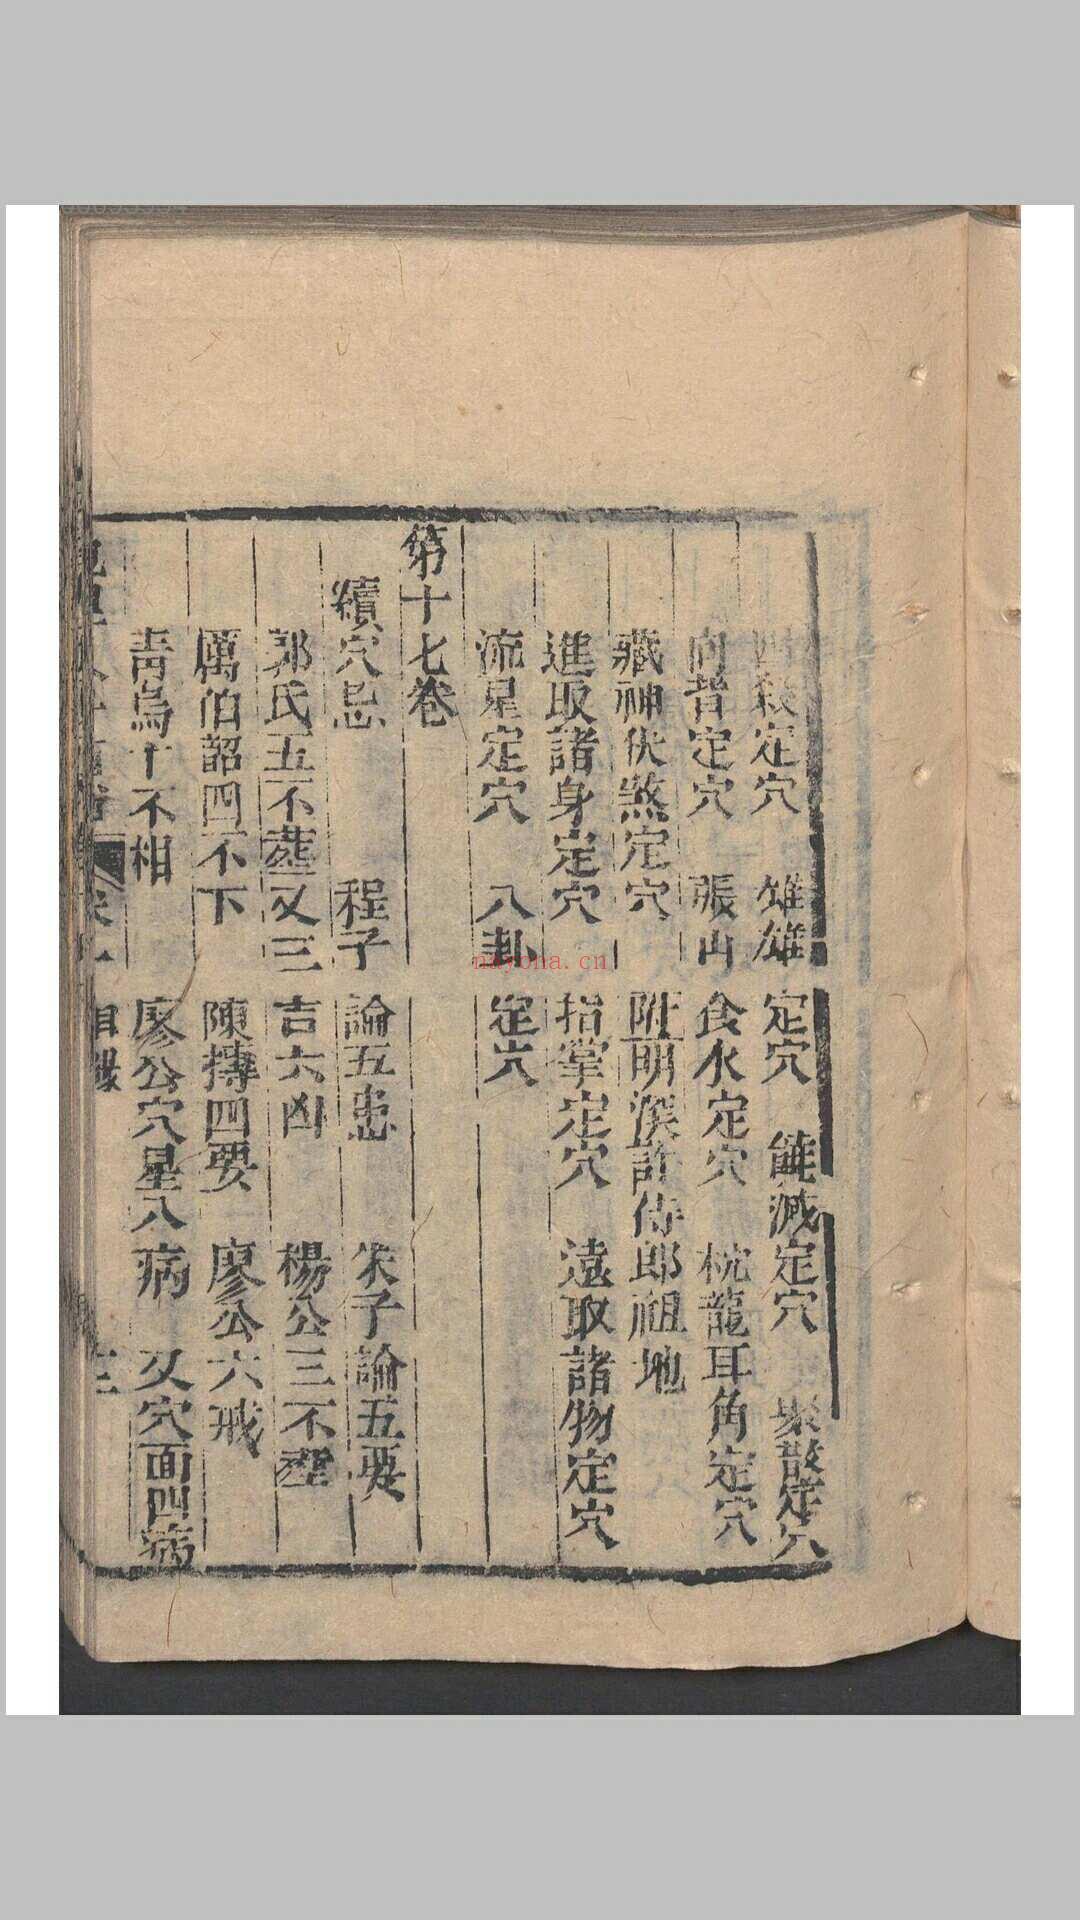 四殺定穴 雌雄定穴 饒減定穴 聚散定穴
向背定穴 張山食水定穴 枕龍耳角定穴
藏神伏煞定穴 附明溪許侍郎祖地
進取諸身定穴 指掌定穴 遠取諸物定穴
流星定穴 八卦定穴
第十七卷
續穴忌 程子論五患 朱子論五要
郭氏五不葬又三吉六凶 楊公三不葬
厲伯韶四不下 陳摶四要 廖公六戒
青烏十不相 廖公穴星八病 又穴面四病
nayona.cn